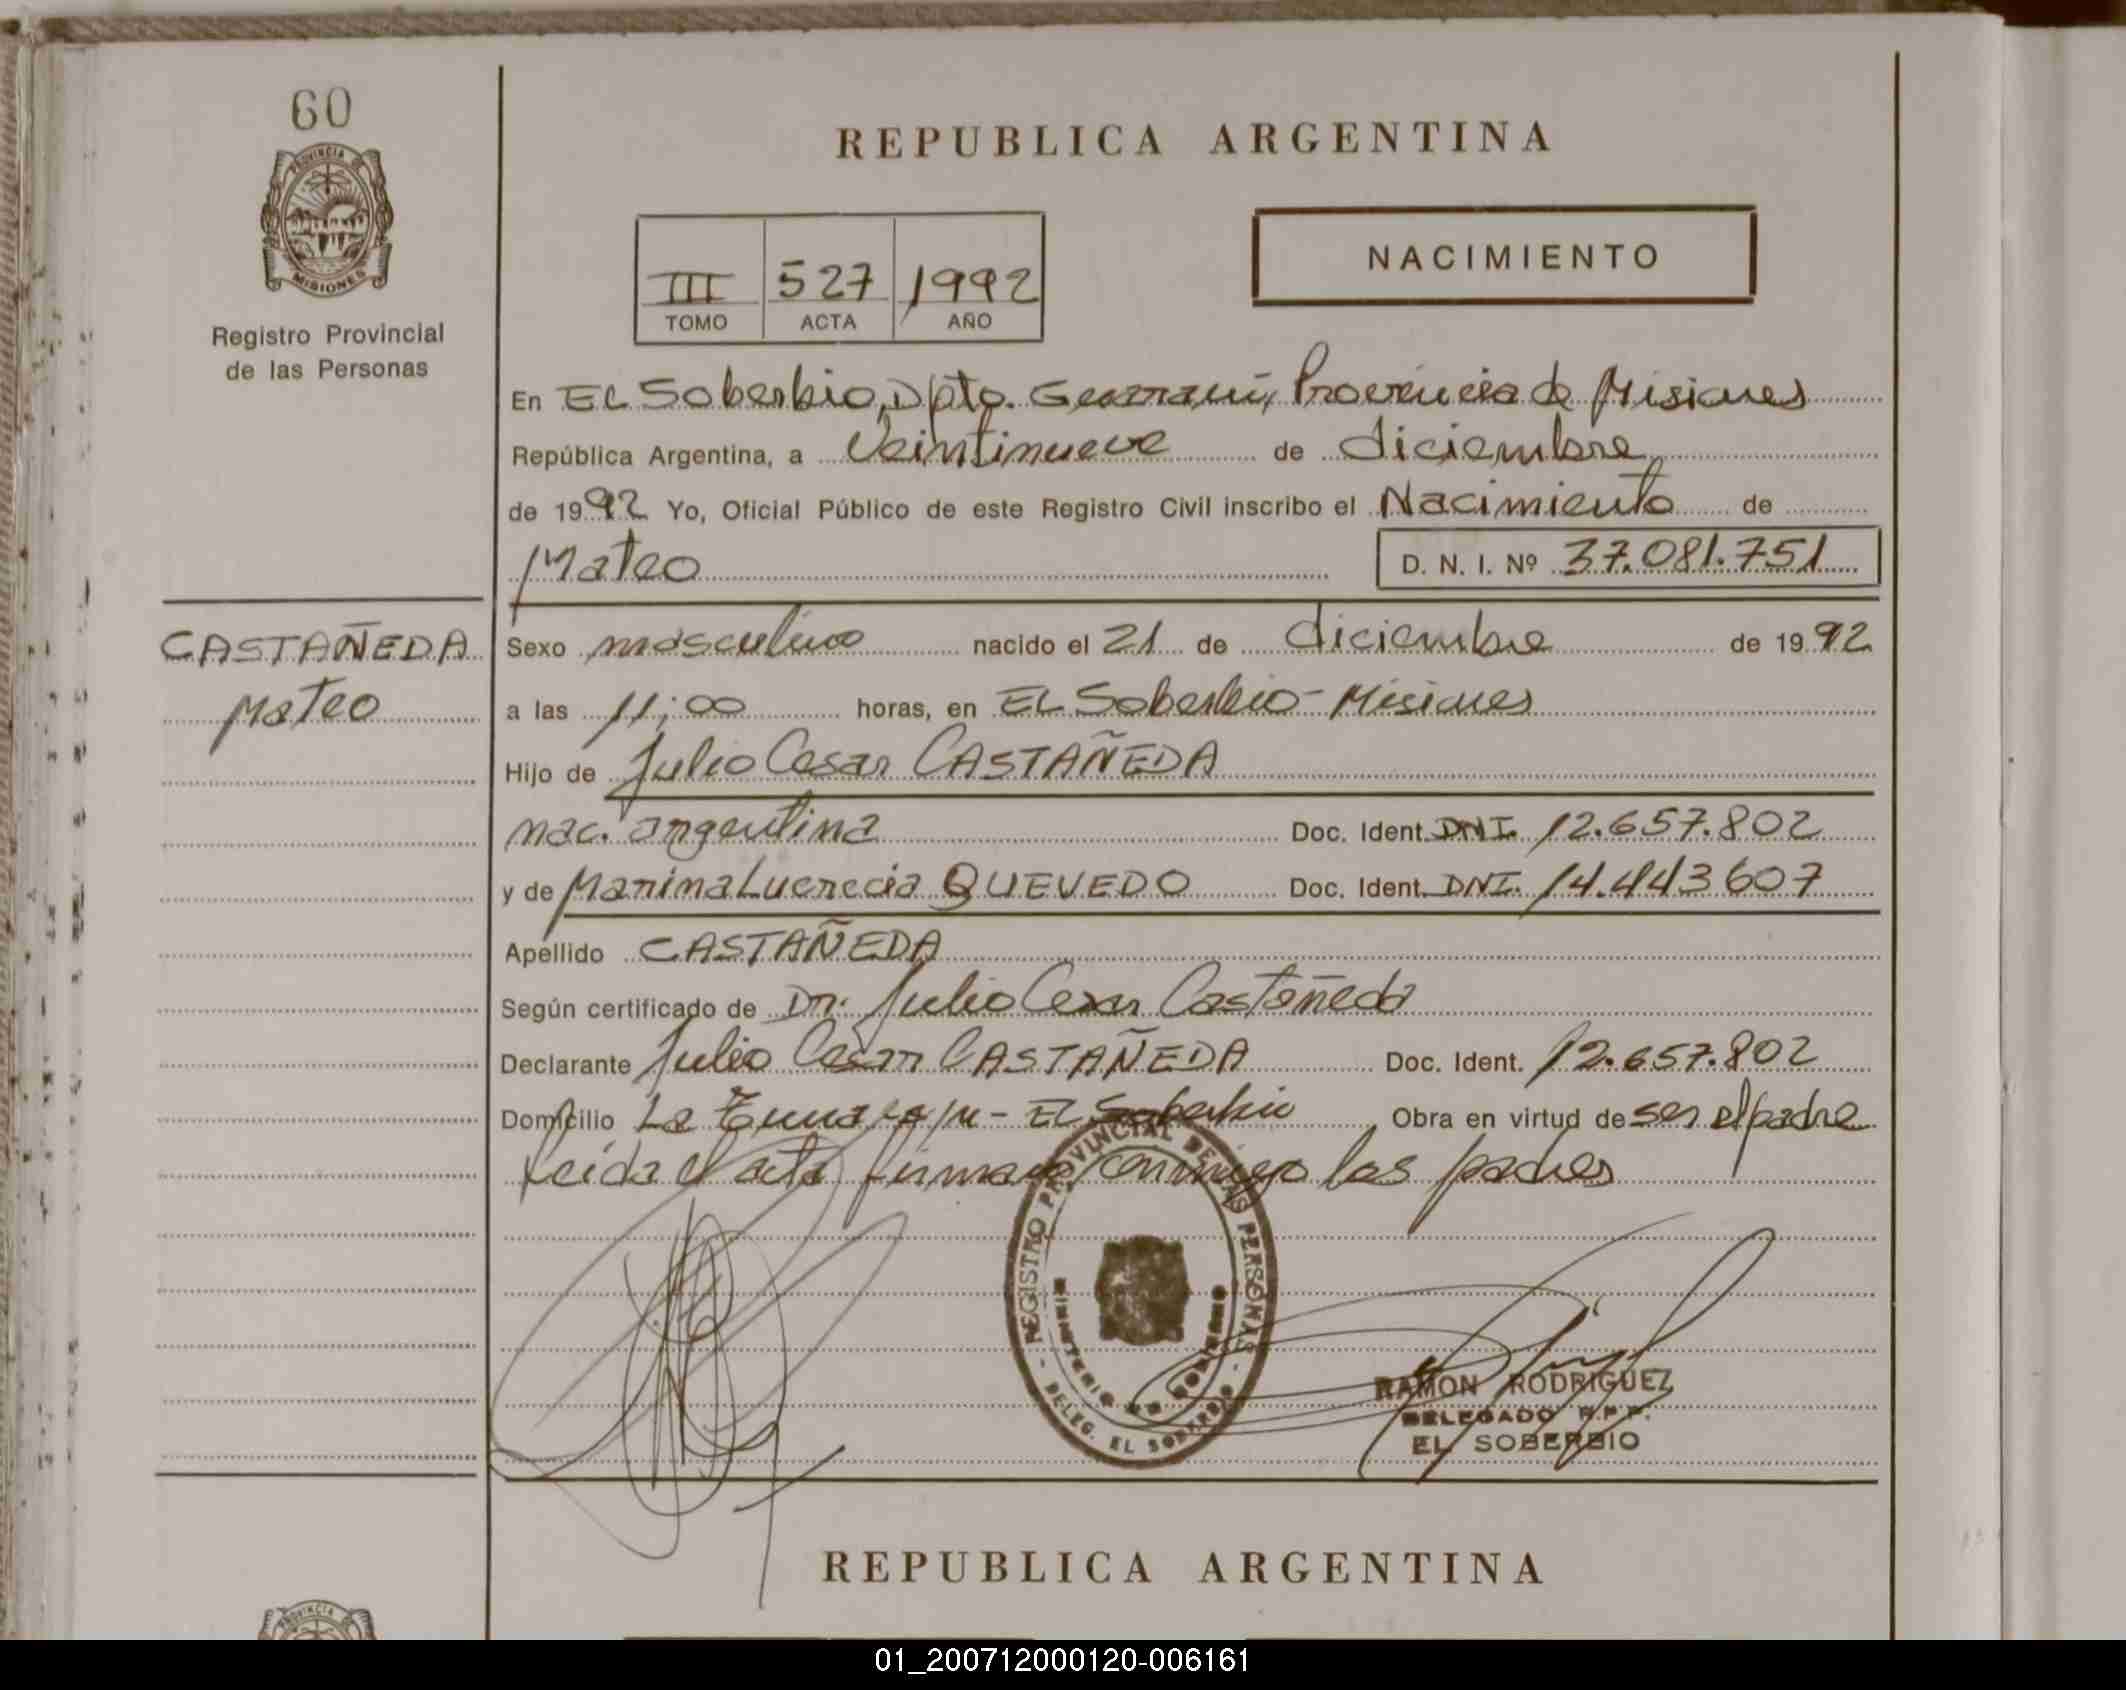 60
PROVINCIA DE
MISIONES
Registro Provincial
de las Personas
CASTAÑEDA
Mateo
REPUBLICA ARGENTINA
NACIMIENTO
III 527 1992
TOMO ACTA AÑO
En EL Soberbio, Dpto. Guaraní, Provincia de Misiones
República Argentina, a Veintinueve de diciembre
de 1992 Yo, Oficial Público de este Registro Civil inscribo el Nacimiento de
Mateo D. N. I. Nº 37.081.751
Sexo masculino nacido el 21 de diciembre de 1992
a las 11;00 horas, en EL Soberbio - Misiones
Hijo de Julio Cesar CASTAÑEDA
nac. argentina Doc. Ident. DNI. 12.657.802
y de Marina Lucrecia QUEVEDO Doc. Ident. DNI. 14.443607
Apellido CASTAÑEDA
Según certificado de Dr. Julio Cesar Castañeda
Declarante Julio Cesar CASTAÑEDA Doc. Ident. 12.657.802
Domicilio La - EL Soberbio Obra en virtud de ser el padre
Leída el acta firman conmigo los padres
REGISTRO PROVINCIAL DE LAS PERSONAS
MINISTERIO DE GOBIERNO
- DELEG. EL SOBERBIO -
RAMON RODRIGUEZ
DELEGADO R.P.P.
EL SOBERBIO
REPUBLICA ARGENTINA
PROVINCIA DE
01_200712000120-006161